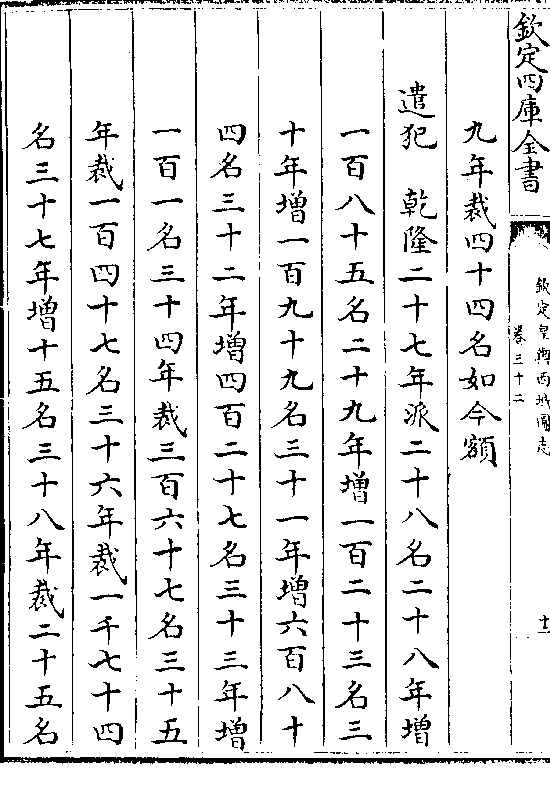 欽定四庫全書
欽定皇輿西域圖志
卷三十二
十一
九年裁四十四名如今額
遣犯　乾隆二十七年派二十八名二十八年增
一百八十五名二十九年增一百二十三名三
十年增一百九十九名三十一年增六百八十
四名三十二年增四百二十七名三十三年增
一百一名三十四年裁三百六十七名三十五
年裁一百四十七名三十六年裁一千七十四
名三十七年增十五名三十八年裁二十五名